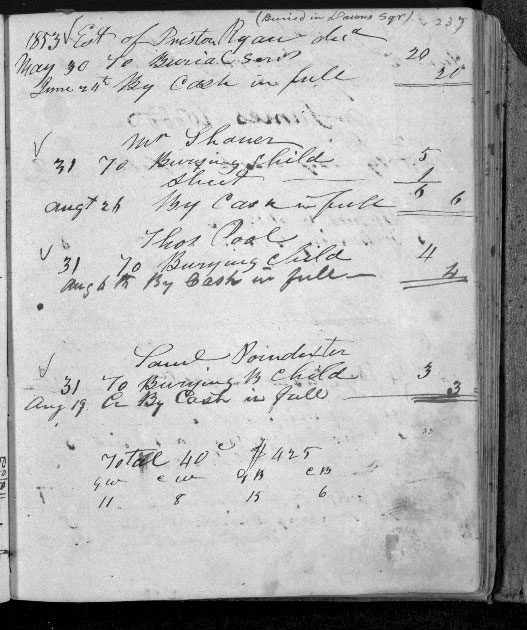 (Buried in Dawns Sqr) 237
1853 Est of Preston Ryan decd
May 30 To Burial Servs 20
June 24th By Cash in full 20
Mr Shaner
31 To Burying Child 5
Sheet 1
augt 24 By Cash in full 6 6
Thos Pool
31 To Burying Child 4
aug 6th By Cash in full 4
Saml Poindexter
31 To Burying B Child 3
Aug 19 Cr By Cash in full 3
Total 40 c $425
GW CW GB CB
11 8 15 6